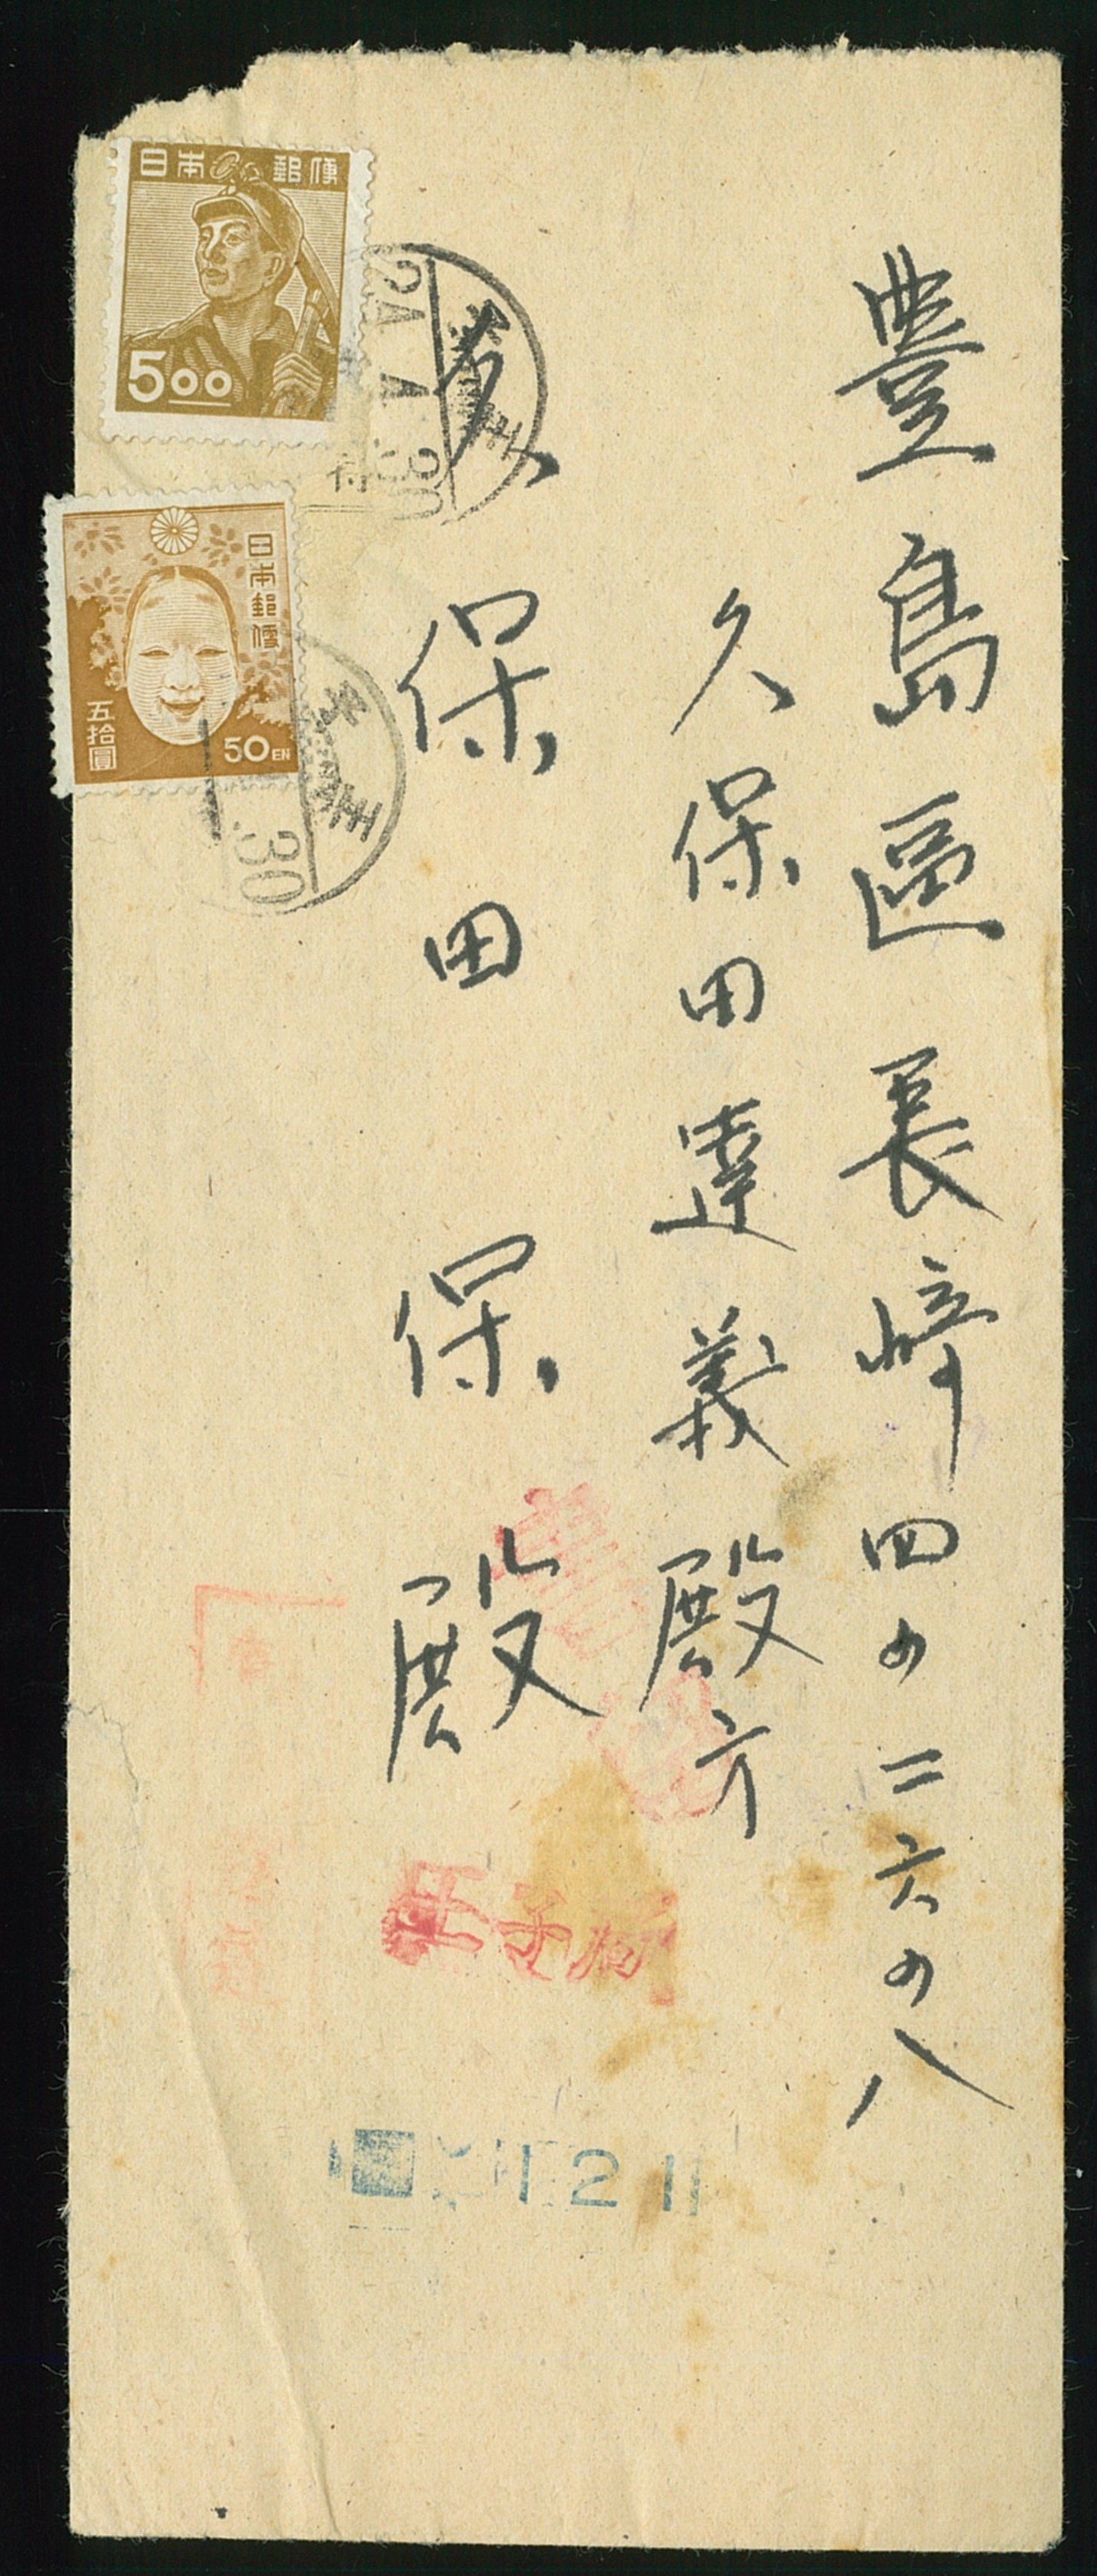 豊島區長崎四の二六の八
久保田達義殿方
久保田保殿
日本郵便
5.00
24.4.30
日本郵便
五拾圓
50EN
王子
30
王子局
1211